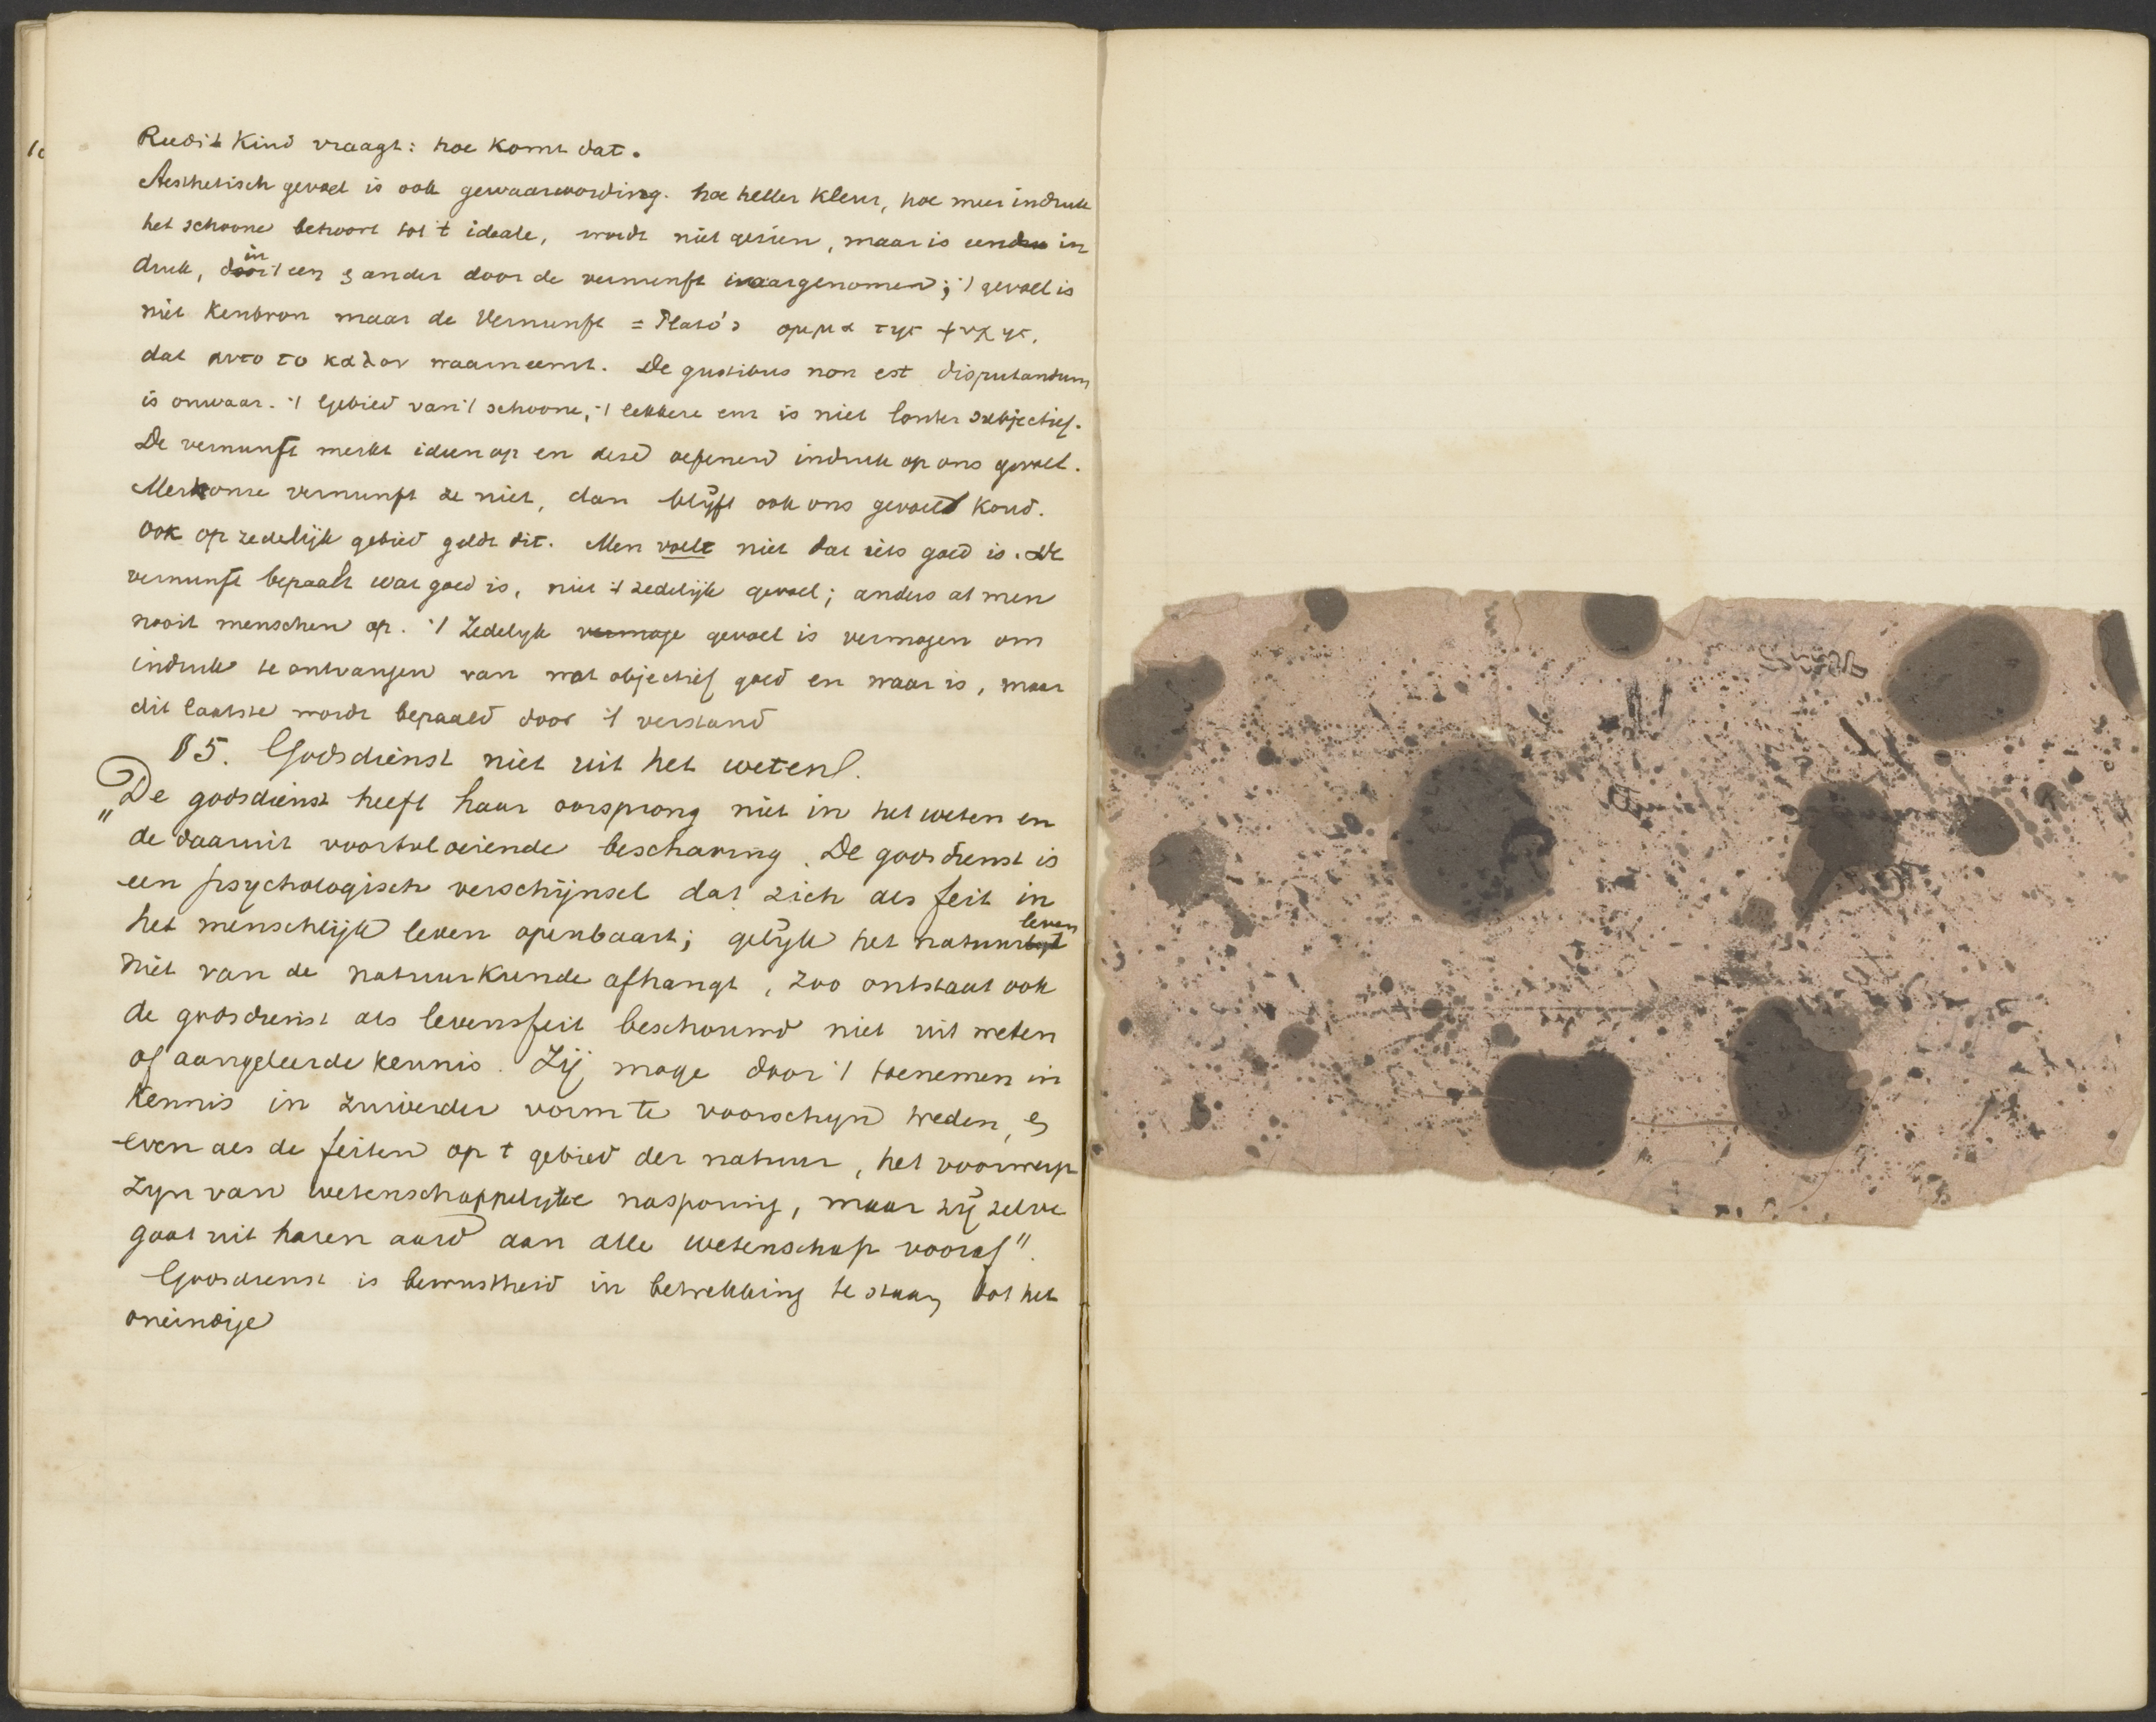 Reeds 't Kind vraagt: hoe komt dat.
Aesthetisch gevoel is ook gewaarwording. hoe heller kleur, hoe meer indruk
het schoone behoort tot 't ideale, wordt niet gezien, maar is een in
druk, in 't een & ander door de vernunft waargenomen; 't gevoel is
niet Kenbron maar de Vernunft = Plato's ομμα της ψυχης,
dat αυτο το καλον waarneemt. De gustibus non est disputandum
is onwaar. 't Gebied van 't schoone, 't lekkere enz is niet louter subjectief.
De vernunft merkt ideen op en deze oefenen indruk op ons gevoel.
Merkt onze vernunft ze niet, dan blijft ook ons gevoel koud.
Ook op zedelijk gebied geldt dit. Men voelt niet dat iets goed is. De
vernunft bepaalt wat goed is, niet 't zedelijk gevoel; anders at men
nooit menschen op. 't Zedelijk vermoge gevoel is vermogen om
indruk te ontvangen van wat objectief goed en waar is, maar
dit laatste wordt bepaald door 't verstand
§5. Godsdienst niet uit het weten.
„De godsdienst heeft haar oorsprong niet in het weten en
de daaruit voortvloeiende beschaving. De godsdienst is
een psychologisch verschijnsel dat zich als feit in
het menschlijk leven openbaart; gelijk het natuurleven
niet van de natuurkunde afhangt, zoo ontstaat ook
de godsdienst als levensfeit beschouwd niet uit weten
of aangeleerde kennis. Zij moge door 't toenemen in
Kennis in zuiverder vorm te voorschijn treden, &
even als de feiten op t gebied der natuur, het voorwerp
zijn van wetenschappelijke nasporing, maar zij zelve
gaat uit haren aard aan alle wetenschap vooraf".
Godsdienst is bewustheid in betrekking te staan tot het
oneindige